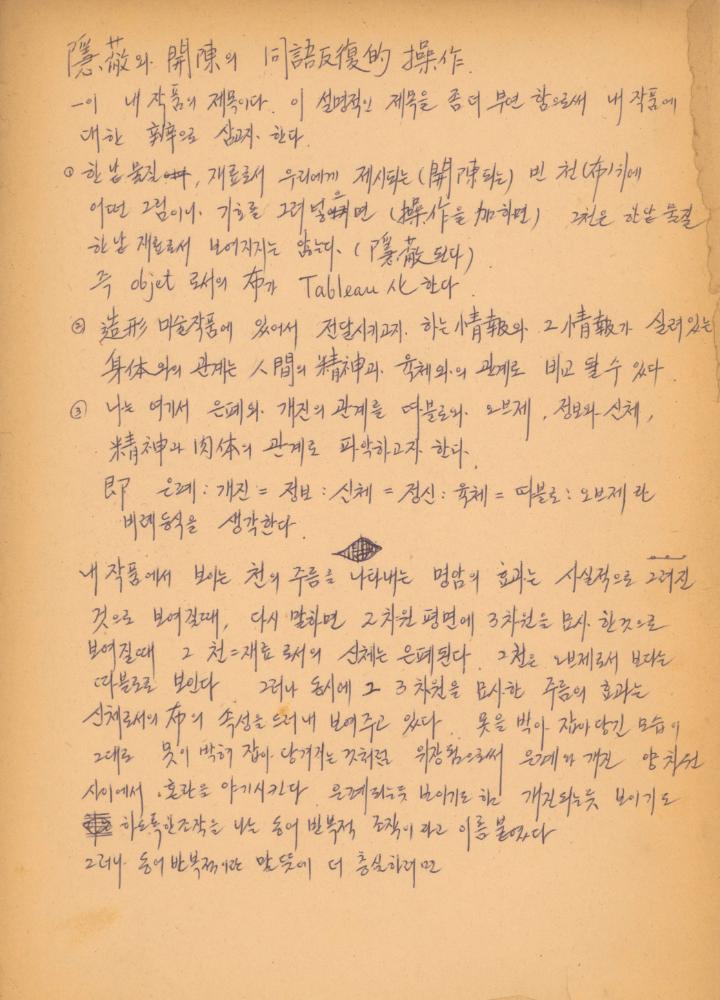 隱蔽와 開陳의 同語反復的 操作.
-이 내 작품의 제목이다. 이 설명적인 제목을 좀 더 부연 함으로써 내 작품에
대한 辛辛으로 삼고자 한다.
① 한낱 물질, 재료로서 우리에게 제시되는 (開陳되는) 빈 천(布)위에
어떤 그림이나 기호를 그려 넣으면 (操作을 加하면) 그천은 한낱 물질
한낱 재료로서 보여지지는 않는다. (隱蔽된다)
즉 objet 로서의 布가 Tableau 化 한다.
② 造形 미술작품에 있어서 전달시키고자 하는 情報와 그 情報가 실려있는
身体와의 관계는 人間의 精神과 육체와의 관계로 비교 될 수 있다.
③ 나는 여기서 은폐와 개진의 관계를 따블로와 오브제, 정보와 신체,
精神과 肉体의 관계로 파악하고자 한다.
即 은폐 : 개진 = 정보 : 신체 = 정신 : 육체 = 따블로 : 오브제 란
비례등식을 생각한다.
내 작품에서 보이는 천의 주름을 나타내는 명암의 효과는 사실적으로 그려진
것으로 보여질때, 다시 말하면 2차원 평면에 3차원을 묘사 한것으로
보여질때 그 천=재료로서의 신체는 은폐된다. 그천은 오브제로서 보다는
따블로로 보인다 그러나 동시에 그 3차원을 묘사한 주름의 효과는
신체로서의 布의 속성을 드러내 보여주고 있다. 못을 박아 잡아당긴 모습이
그대로 못이 박혀 잡아 당겨지는 것처럼 위장됨으로써 은폐와 개진 양차원
사이에서 혼란을 야기시킨다 은폐되는듯 보이기도 하고 개진되는듯 보이기도
하도록한조작을 나는 동어 반복적 조작이라고 이름 붙였다
그러나 동어반복적이란 말뜻에 더 충실하려면